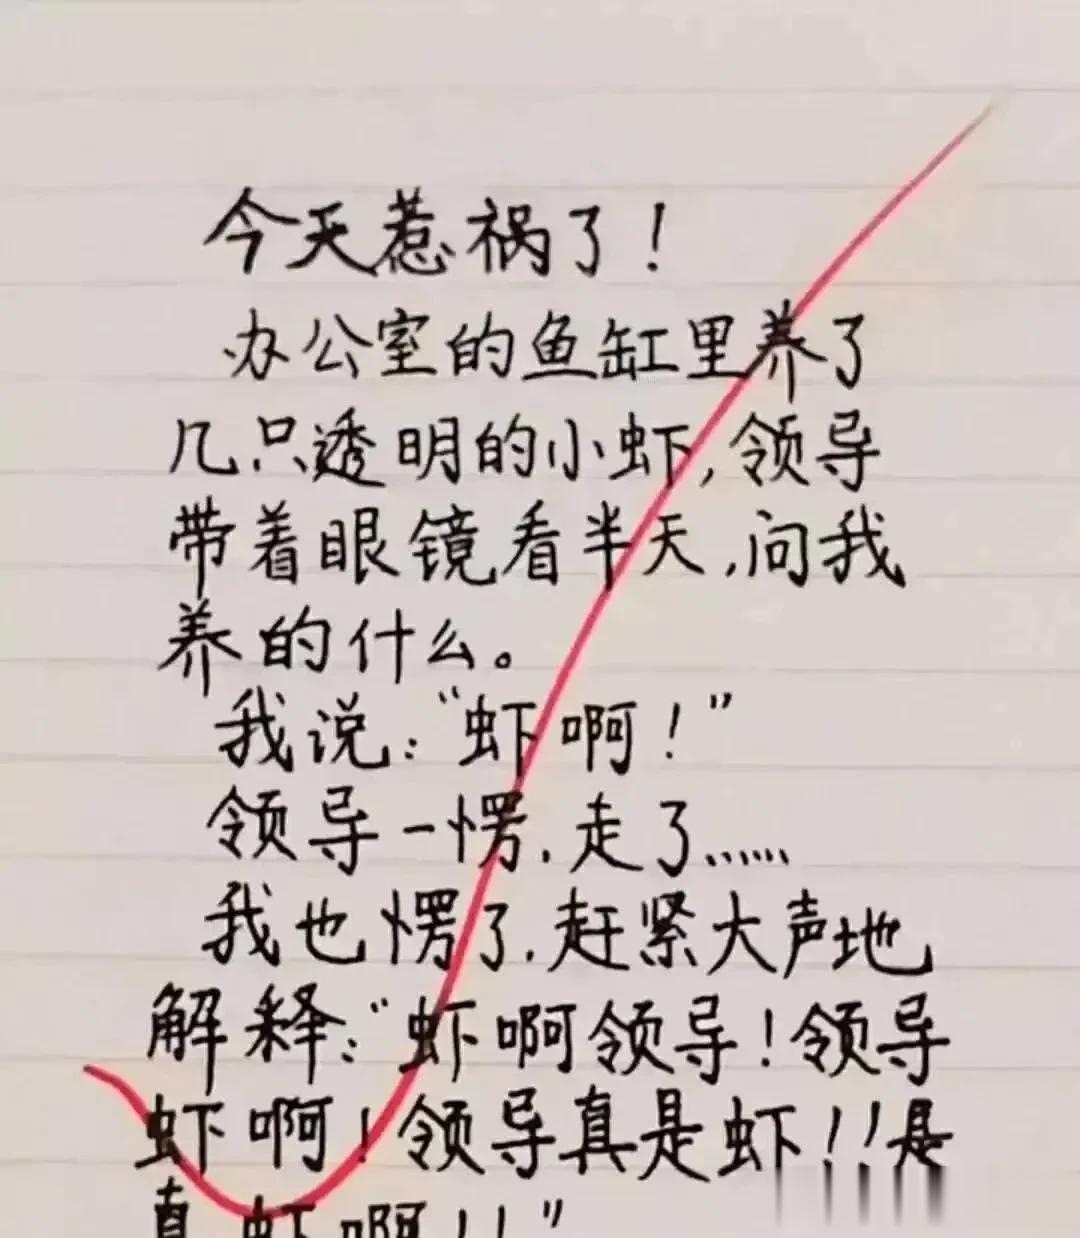 今天惹祸了！
办公室的鱼缸里养了
几只透明的小虾，领导
带着眼镜看半天，问我
养的什么。
我说：“虾啊！”
领导一愣，走了……
我也愣了，赶紧大声地
解释：“虾啊领导！领导
虾啊！领导真是虾！！是
真虾啊！！”